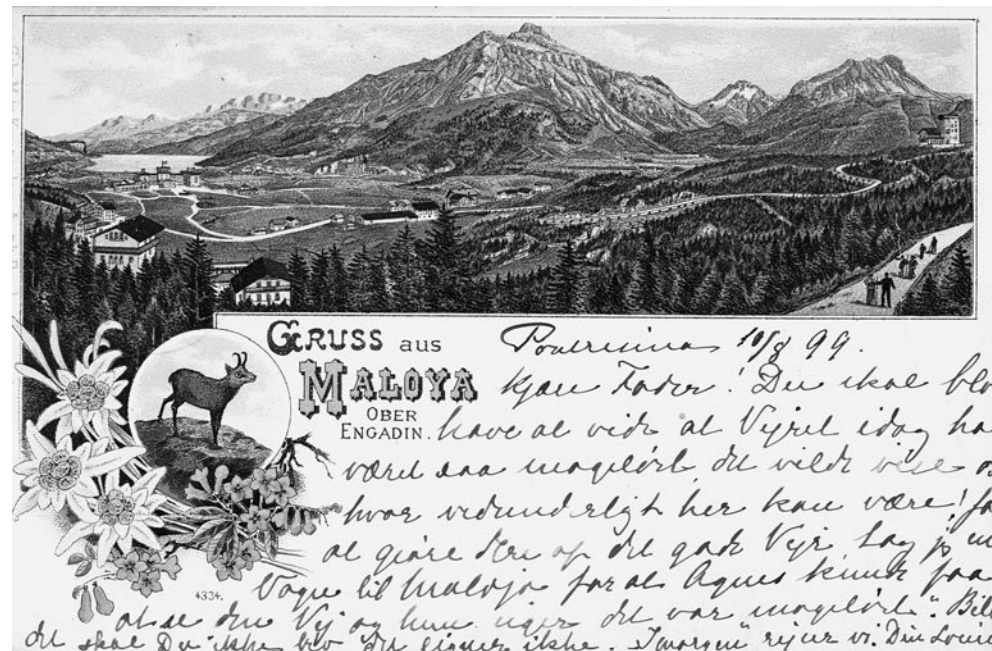 GRUSS aus
MALOYA
OBER
ENGADIN.
4334.
Pontresina 10/8 99.
Kjære Fader! Du skal blo
have at vide at Vejret idag ha
været saa mageløst det vilde vise o
hvor vidunderligt her kan være! fo
at gjøre Ære af det gode Vejr tog jeg
Vogn til Maloja for at Agnes kunde faa
at se den Vej og hun siger det var mageløst."
det skal Du ikke tro det ligner ikke. Imorgen rejser vi. Din